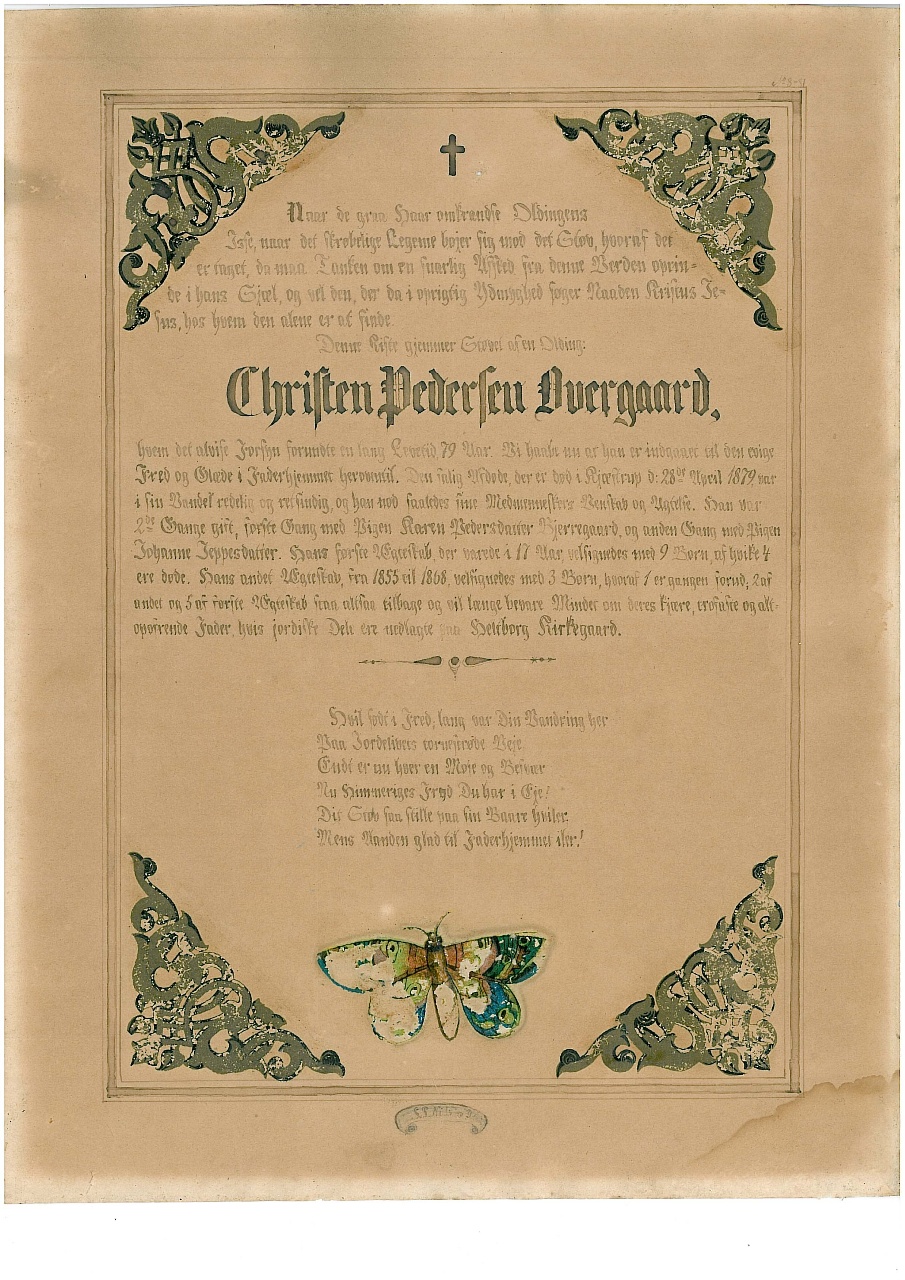 Naar de graa Haar omkrandse Oldingens
Isse, naar det skrøbelige Legeme bøjer sig mod det Støv, hvoraf det
er taget, da maa Tanken om en snarlig Afsked fra denne Verden oprin-
de i hans Sjæl, og vel den, der da i oprigtig Ydmyghed søger Naaden Kristus Je-
sus, hos hvem den alene er at finde.
Denne Kiste gjemmer Støvet af en Olding:
Christen Pedersen Overgaard,
hvem det alvise Forsyn forundte en lang Levetid, 79 Aar. Vi haabe nu at han er indgaaet til den evige
Fred og Glæde i Faderhjemmet heroventil. Den salig Afdøde, der er død i Kjæstrup d: 28de April 1879, var
i sin Vandel redelig og retsindig, og han nød saaledes sine Medmenneskers Venskab og Agtelse. Han var
2de Gange gift, første Gang med Pigen Karen Pedersdatter Bjerregaard, og anden Gang med Pigen
Johanne Jeppesdatter. Hans første Ægteskab, der varede i 17 Aar, velsignedes med 9 Børn, af hvilke 4
ere døde. Hans andet Ægteskab, fra 1855 til 1868, velsignedes med 3 Børn, hvoraf 1 er gangen forud, 2 af
andet og 5 af første Ægteskab staa altsaa tilbage og vil længe bevare Mindet om deres kjære, trofaste og alt-
opofrende Fader, hvis jordiske Dele ere nedlagte paa Heltborg Kirkegaard.
Hvil sødt i Fred; lang var Din Vandring her
Paa Jordelivets tornestrøde Veje
Endt er nu hver en Møje og Besvær
Nu Himmeriges Fryd Du har i Eje!
Dit Støv saa stille paa sin Baare hviler
Mens Aanden glad til Faderhjemmet iler!